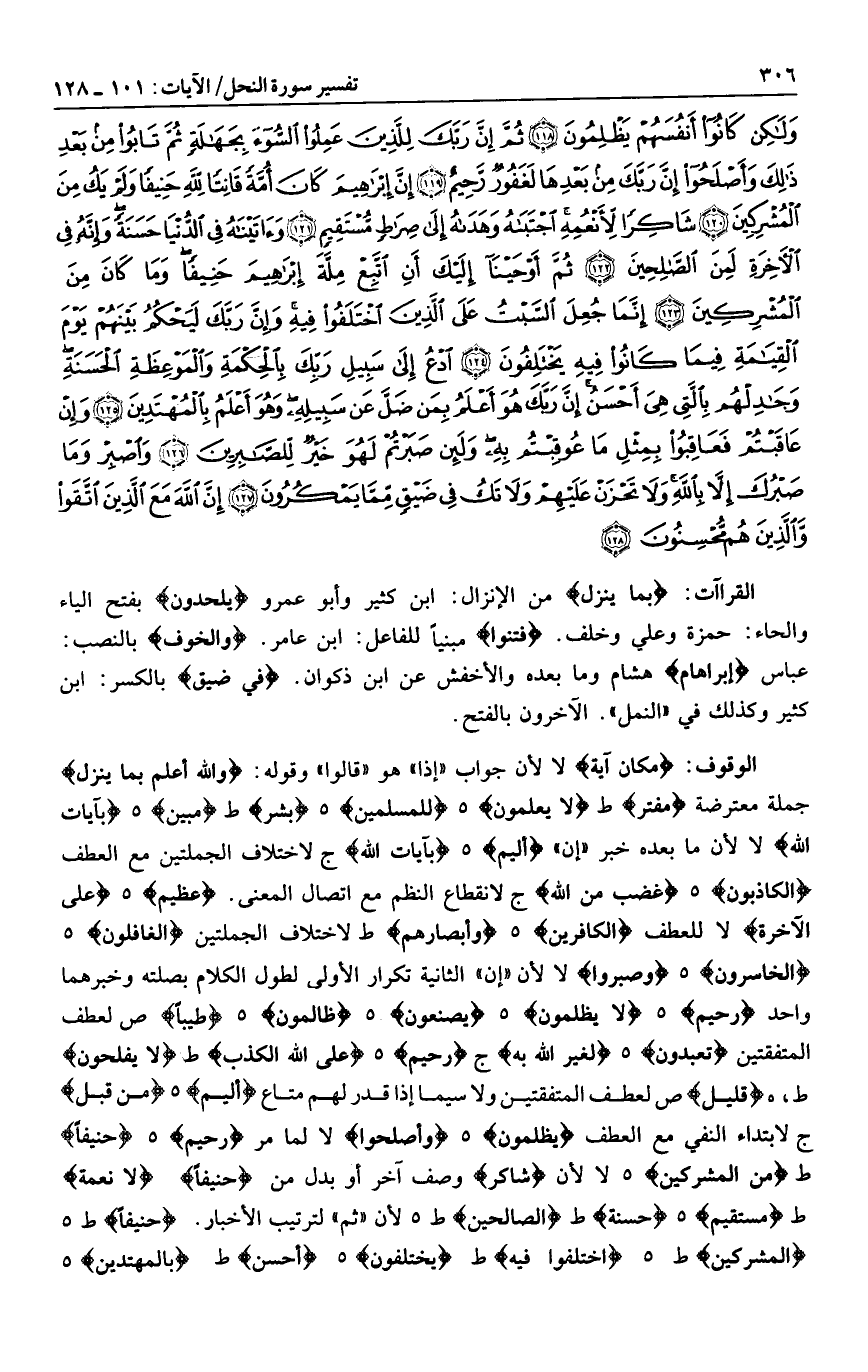 ٣٠٦
تفسير سورة النحل/ الآيات: ١٠١ ـ ١٢٨
وَلَٰكِن كَانُوٓا۟ أَنفُسَهُمْ يَظْلِمُونَ ﴿١١٨﴾ ثُمَّ إِنَّ رَبَّكَ لِلَّذِينَ عَمِلُوا۟ ٱلسُّوٓءَ بِجَهَٰلَةٍ ثُمَّ تَابُوا۟ مِنۢ بَعْدِ
ذَٰلِكَ وَأَصْلَحُوٓا۟ إِنَّ رَبَّكَ مِنۢ بَعْدِهَا لَغَفُورٌ رَّحِيمٌ ﴿١١٩﴾ إِنَّ إِبْرَٰهِيمَ كَانَ أُمَّةً قَانِتًا لِّلَّهِ حَنِيفًا وَلَمْ يَكُ مِنَ
ٱلْمُشْرِكِينَ ﴿١٢٠﴾ شَاكِرًا لِّأَنْعُمِهِ ۚ ٱجْتَبَىٰهُ وَهَدَىٰهُ إِلَىٰ صِرَٰطٍ مُّسْتَقِيمٍ ﴿١٢١﴾ وَءَاتَيْنَٰهُ فِى ٱلدُّنْيَا حَسَنَةً ۖ وَإِنَّهُۥ فِى
ٱلْأَخِرَةِ لَمِنَ ٱلصَّٰلِحِينَ ﴿١٢٢﴾ ثُمَّ أَوْحَيْنَآ إِلَيْكَ أَنِ ٱتَّبِعْ مِلَّةَ إِبْرَٰهِيمَ حَنِيفًا ۖ وَمَا كَانَ مِنَ
ٱلْمُشْرِكِينَ ﴿١٢٣﴾ إِنَّمَا جُعِلَ ٱلسَّبْتُ عَلَى ٱلَّذِينَ ٱخْتَلَفُوا۟ فِيهِ ۚ وَإِنَّ رَبَّكَ لَيَحْكُمُ بَيْنَهُمْ يَوْمَ
ٱلْقِيَٰمَةِ فِيمَا كَانُوا۟ فِيهِ يَخْتَلِفُونَ ﴿١٢٤﴾ ٱدْعُ إِلَىٰ سَبِيلِ رَبِّكَ بِٱلْحِكْمَةِ وَٱلْمَوْعِظَةِ ٱلْحَسَنَةِ ۖ
وَجَٰدِلْهُم بِٱلَّتِى هِىَ أَحْسَنُ ۚ إِنَّ رَبَّكَ هُوَ أَعْلَمُ بِمَن ضَلَّ عَن سَبِيلِهِۦ ۖ وَهُوَ أَعْلَمُ بِٱلْمُهْتَدِينَ ﴿١٢٥﴾ وَإِنْ
عَاقَبْتُمْ فَعَاقِبُوا۟ بِمِثْلِ مَا عُوقِبْتُم بِهِۦ ۖ وَلَئِن صَبَرْتُمْ لَهُوَ خَيْرٌ لِّلصَّٰبِرِينَ ﴿١٢٦﴾ وَٱصْبِرْ وَمَا
صَبْرُكَ إِلَّا بِٱللَّهِ ۚ وَلَا تَحْزَنْ عَلَيْهِمْ وَلَا تَكُ فِى ضَيْقٍ مِّمَّا يَمْكُرُونَ ﴿١٢٧﴾ إِنَّ ٱللَّهَ مَعَ ٱلَّذِينَ ٱتَّقَوا۟
وَّٱلَّذِينَ هُم مُّحْسِنُونَ ﴿١٢٨﴾
القراآت: ﴿بما ينزل﴾ من الإنزال: ابن كثير وأبو عمرو ﴿يلحدون﴾ بفتح الياء
والحاء: حمزة وعلي وخلف. ﴿فتنوا﴾ مبنياً للفاعل: ابن عامر. ﴿والخوف﴾ بالنصب:
عباس ﴿إبراهام﴾ هشام وما بعده والأخفش عن ابن ذكوان. ﴿في ضيق﴾ بالكسر: ابن
كثير وكذلك في «النمل». الآخرون بالفتح.
الوقوف: ﴿مكان آية﴾ لا لأن جواب «إذا» هو «قالوا» وقوله: ﴿والله أعلم بما ينزل﴾
جملة معترضة ﴿مفتر﴾ ط ﴿لا يعلمون﴾ ٥ ﴿للمسلمين﴾ ٥ ﴿بشر﴾ ط ﴿مبين﴾ ٥ ﴿بآيات
الله﴾ لا لأن ما بعده خبر «إن» ﴿أليم﴾ ٥ ﴿بآيات الله﴾ ج لاختلاف الجملتين مع العطف
﴿الكاذبون﴾ ٥ ﴿غضب من الله﴾ ج لانقطاع النظم مع اتصال المعنى. ﴿عظيم﴾ ٥ ﴿على
الآخرة﴾ لا للعطف ﴿الكافرين﴾ ٥ ﴿وأبصارهم﴾ ط لاختلاف الجملتين ﴿الغافلون﴾ ٥
﴿الخاسرون﴾ ٥ ﴿وصبروا﴾ لا لأن «إن» الثانية تكرار الأولى لطول الكلام بصلته وخبرهما
واحد ﴿رحيم﴾ ٥ ﴿لا يظلمون﴾ ٥ ﴿يصنعون﴾ ٥ ﴿ظالمون﴾ ٥ ﴿طيباً﴾ ص لعطف
المتفقتين ﴿تعبدون﴾ ٥ ﴿لغير الله به﴾ ج ﴿رحيم﴾ ٥ ﴿على الله الكذب﴾ ط ﴿لا يفلحون﴾
ط، ه ﴿قليل﴾ ص لعطف المتفقتين ولا سيما إذا قدر لهم متاع ﴿أليم﴾ ٥ ﴿من قبل﴾
ج لابتداء النفي مع العطف ﴿يظلمون﴾ ٥ ﴿وأصلحوا﴾ لا لما مر ﴿رحيم﴾ ٥ ﴿حنيفاً﴾
ط ﴿من المشركين﴾ ٥ لا لأن ﴿شاكر﴾ وصف آخر أو بدل من ﴿حنيفاً﴾ ﴿لا نعمة﴾
ط ﴿مستقيم﴾ ٥ ﴿حسنة﴾ ط ﴿الصالحين﴾ ط ٥ لأن «ثم» لترتيب الأخبار. ﴿حنيفاً﴾ ط ٥
﴿المشركين﴾ ط ٥ ﴿اختلفوا فيه﴾ ط ﴿يختلفون﴾ ٥ ﴿أحسن﴾ ط ﴿بالمهتدين﴾ ٥